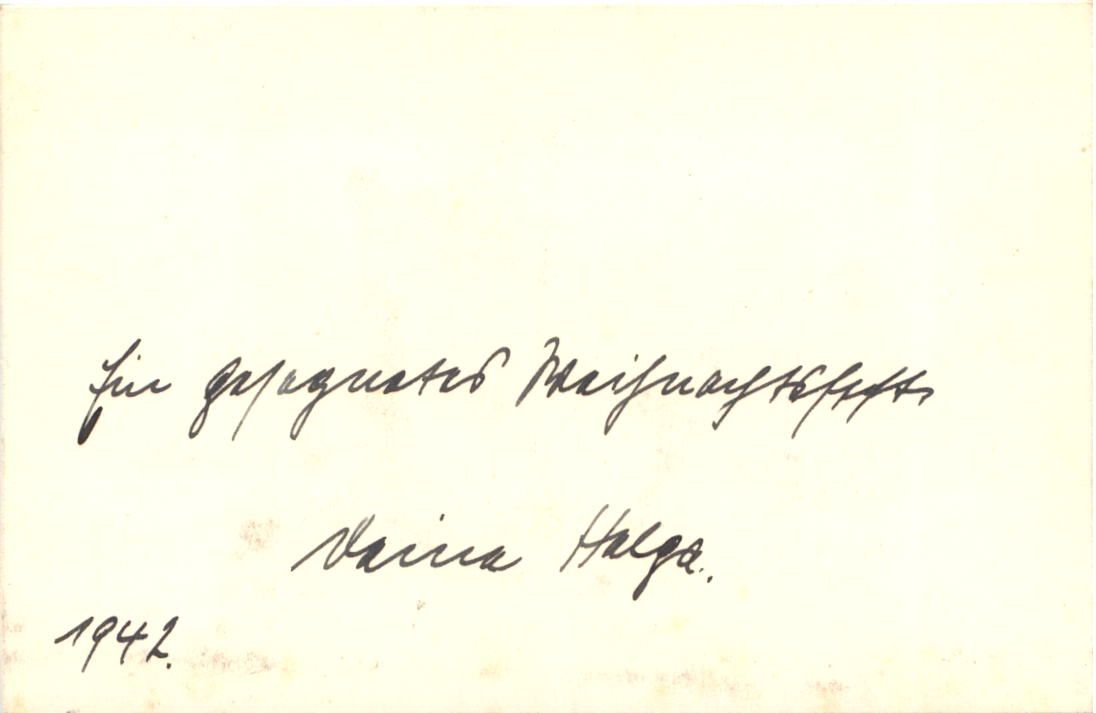 Ein gesegnetes Weihnachtsfest.
Deine Helga.
1942.